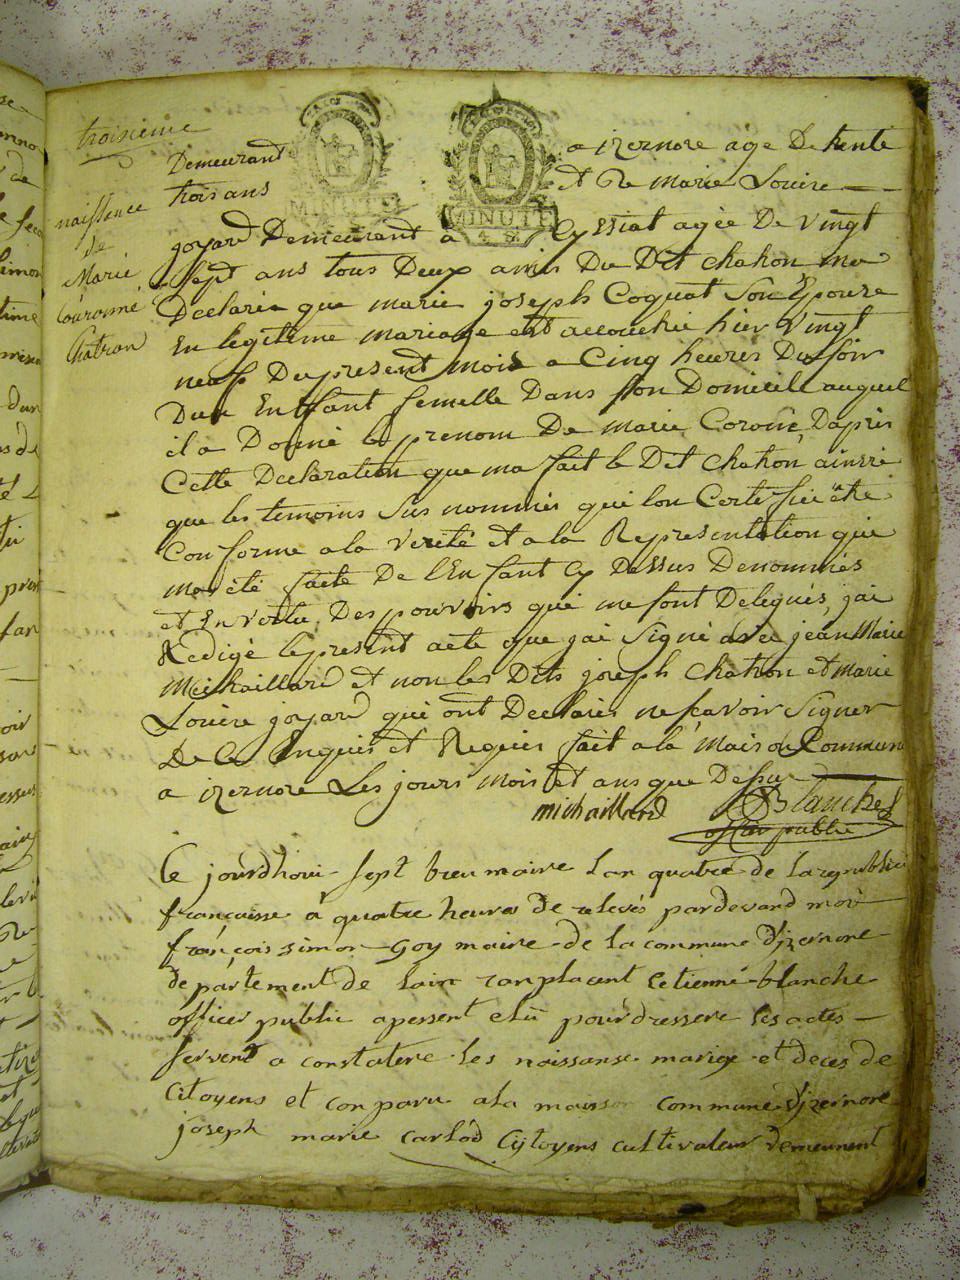 troisieme
naissence
de
Marie
Couronné
Chatron
Demeurant a izernore age De trente
trois ans et De marie Louise
MINUTE MINUTE
4 S.
joyard Demeurant a Cyssiat agée De Vingt
Sept ans tous Deux amis Du Dit Chatron ma
Declaré que marie joseph Coquat Son Epouse
En legitime mariage est accouchée hier Vingt
neuf Du present mois a Cinq heures Du soir
Dun Enffant femelle Dans son Domicile auquel
il a Donné le prenom De marie Coroné, Dapres
Cette Declaration que ma fait le Dit Chatron, ainssi
que les temoins Sus nommés qui lon Certifiée être
Conforme a la Verité et a la Representation qui
ma été faite De lEnfant Cy Dessus Denommés
et En Vertu Des pouvoirs qui me sont Delegués, jai
Redigé le present acte que jai Signé avec jean Marie
Michaillard et non les Dits joseph Chatron et marie
Louise joyard qui ont Declarés ne sçavoir Signer
De Ce Enquis et Requis fait a la Maison Commune
a izernore Les jours mois et ans que Dessus
michaillard Blanche
officier public
Ce jourdhoui sept breumaire lan quatre de la republi
francaisse a quatre heures de relevés pardevand moi
francois simon Goy maire de la commune d'izernore
departement de lain ranplacent Eetienne blanche
officer public apessent elu pour dressere les actes
servent a constatere les naissanse marige et deces de
Citoyens et conparu a la maison commune d'izernore
joseph marie carlod Cytoyens cultivateur demeurent